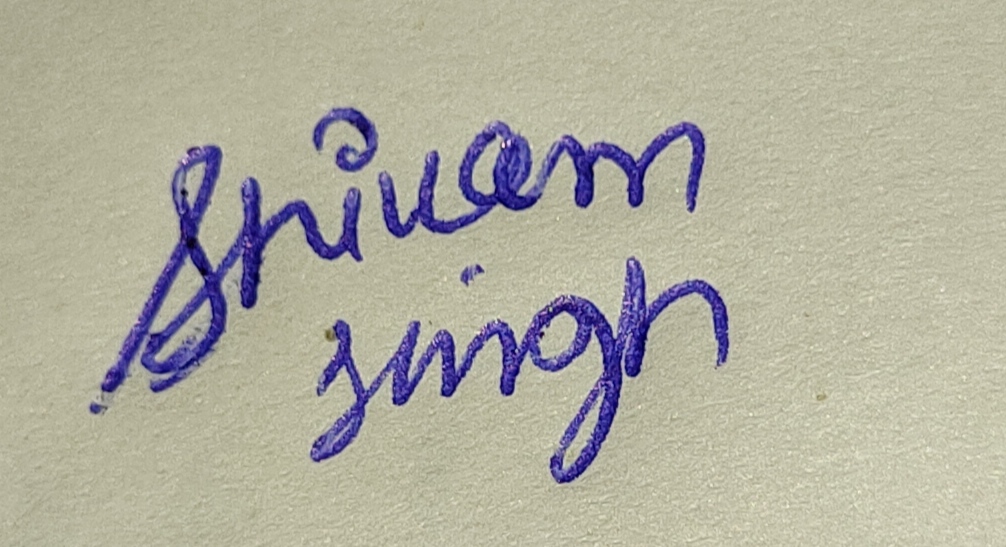 Shivam
singh